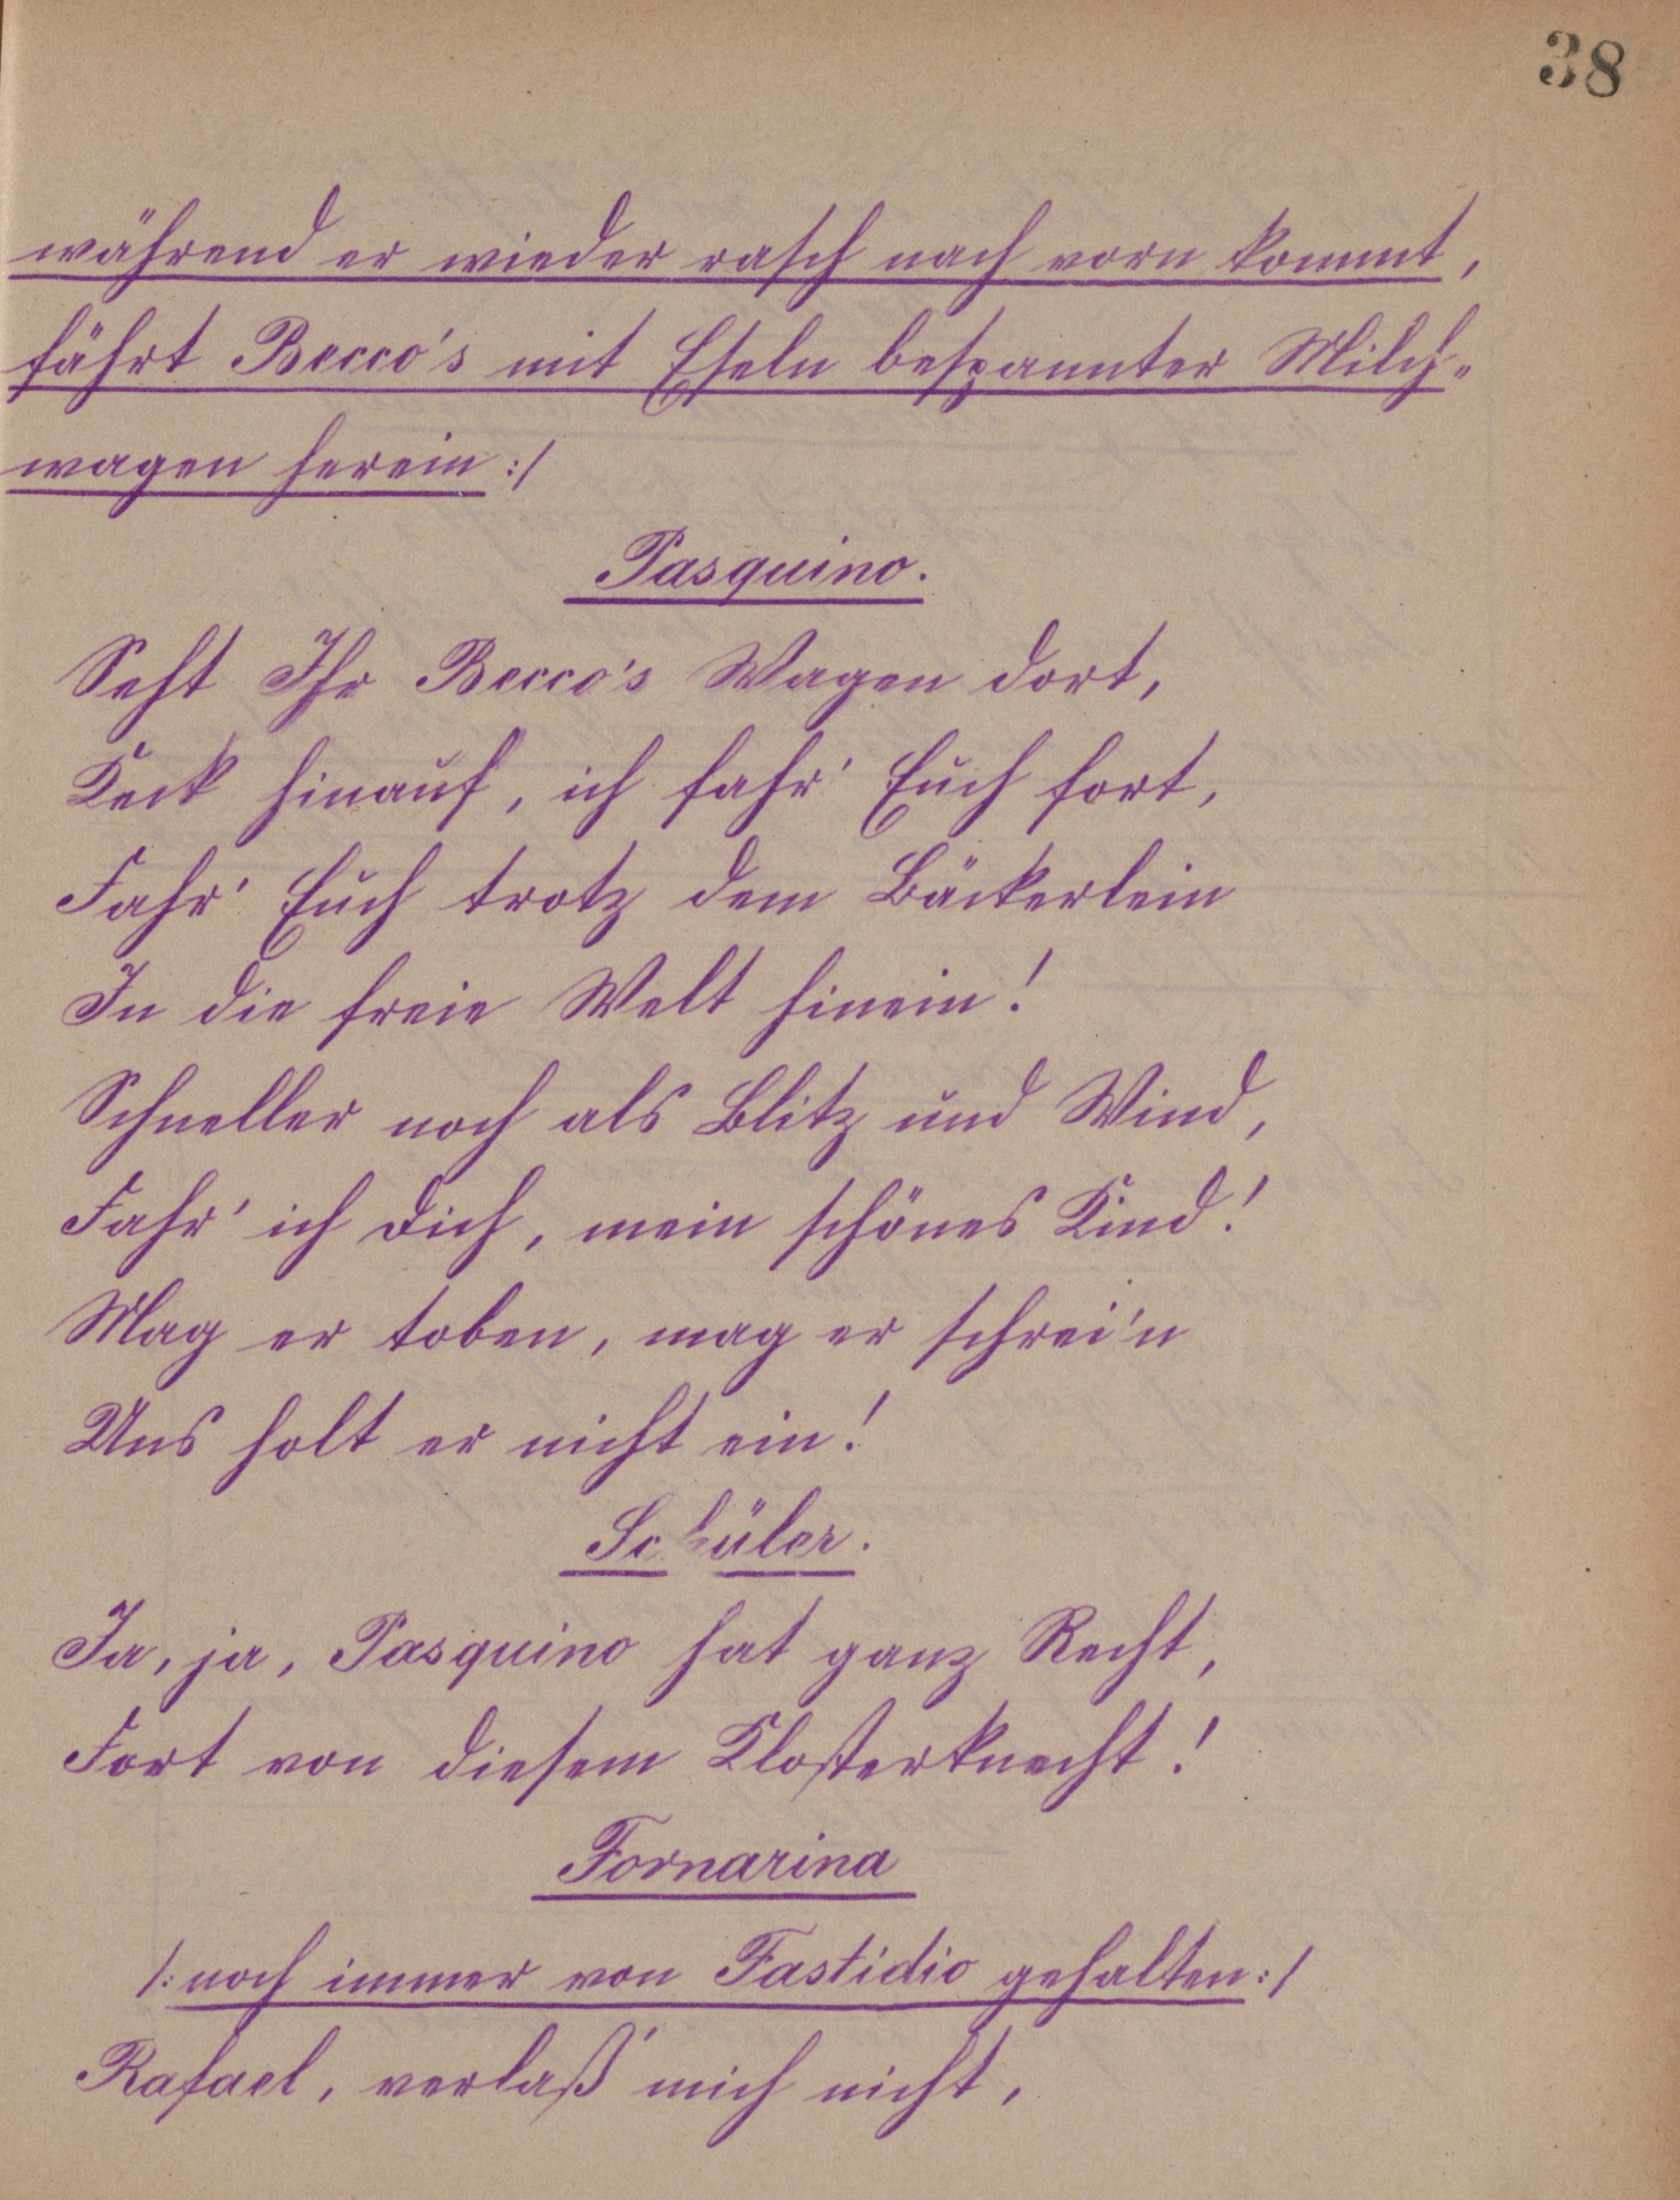 38
während er wieder rasch nach vorn kommt,
fährt Becco's mit Eseln bespannter Milch-
wagen herein :/
Pasquino.
Seht Ihr Becco's Wagen dort,
Keck hinauf, ich fahr' Euch fort,
Fahr' Euch trotz dem Bäckerlein
In die freie Welt hinein!
Schneller noch als Blitz und Wind,
Fahr' ich dich, mein schönes Kind!
Mag er toben, mag er schrei'n
Uns holt er nicht ein!
Schüler.
Ja, ja, Pasquino hat ganz Recht,
Fort von diesem Klosterknecht!
Fornarina
/: noch immer von Fastidio gehalten :/
Rafael, verlaß' mich nicht,